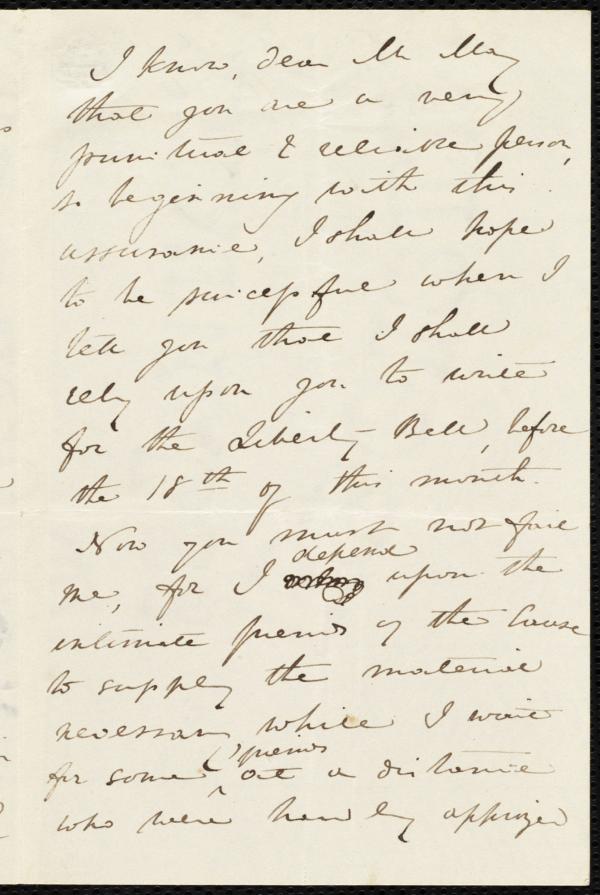 I know, dear Mr May
that you are a very
punctual & reliable person,
so beginning with this
assurance, I shall hope
to be successful when I
tell you that I shall
rely upon you to write
for the Liberty Bell, before
the 18th of this month.
Now you must not fail
me, for I depend upon the
intimate friends of the Cause
to supply the material
necessary while I wait
for some friends at a distance
who were hardly apprized